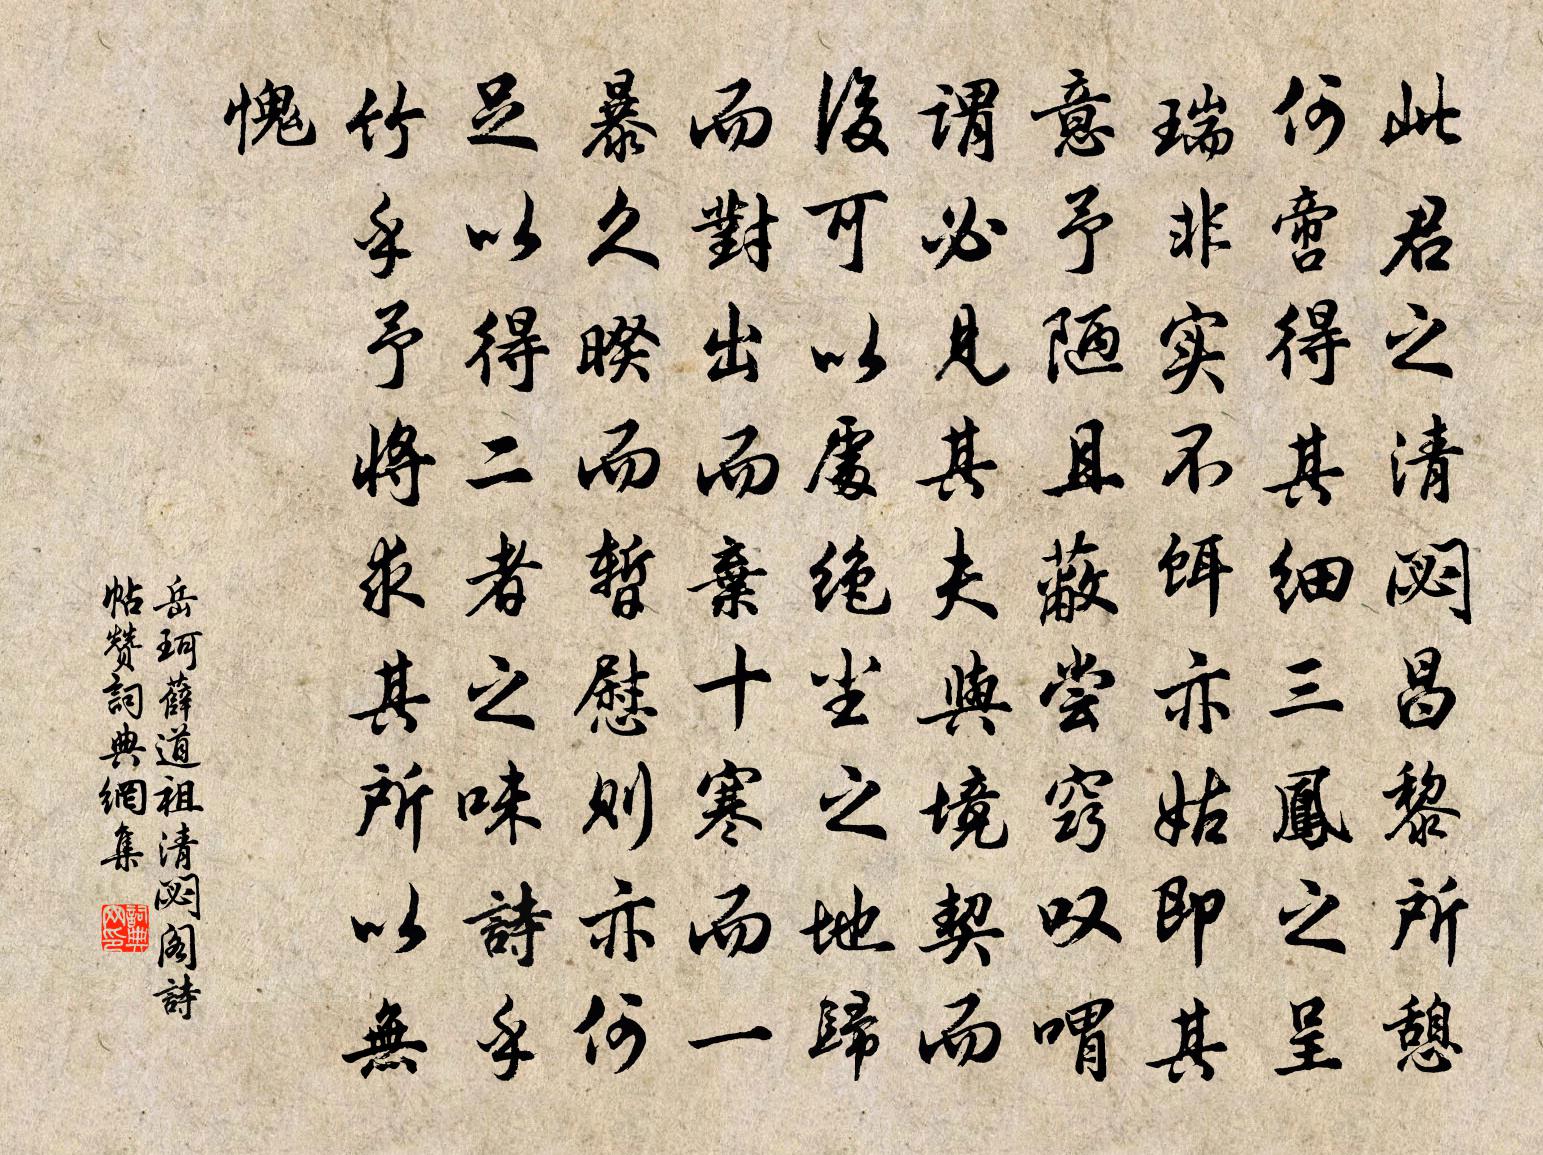 此君之清閟昌黎所憩
何啻得其细三鳳之呈
瑞非实不饵亦姑即其
意予陋且蔽尝窍叹喟
谓必見其夫與境契而
後可以處绝尘之地歸
而對出而棄十寒而一
暴久暌而暂慰则亦何
足以得二者之味詩乎
竹乎予将求其所以無
愧
岳珂薛道祖清閟阁詩
帖赞詞典網集
詞典